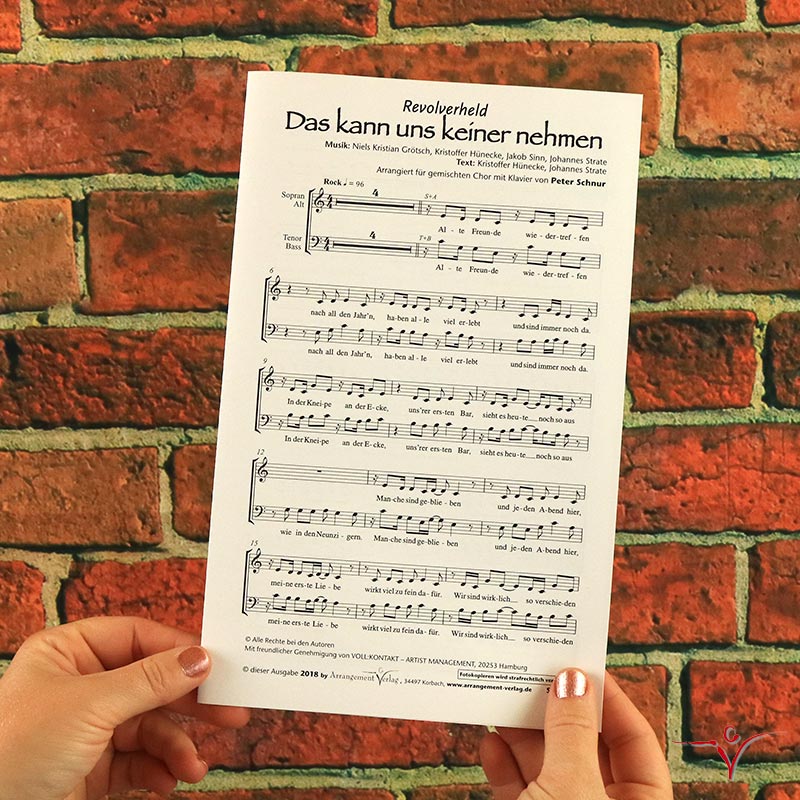 Revolverheld
Das kann uns keiner nehmen
Musik: Niels Kristian Grötsch, Kristoffer Hünecke, Jakob Sinn, Johannes Strate
Text: Kristoffer Hünecke, Johannes Strate
Arrangiert für gemischten Chor mit Klavier von Peter Schnur
Rock ♩ = 96
Sopran
Alt
4
S+A
Al - te Freun-de wie - der-tref - fen
Tenor
Bass
4
T+B
Al - te Freun-de wie - der-tref - fen
6
nach all den Jahr'n, ha-ben al - le viel er-lebt und sind immer noch da.
nach all den Jahr'n, ha-ben al - le viel er-lebt und sind immer noch da.
9
In der Knei-pe an der E-cke, uns'rer ers-ten Bar, sieht es heu-te__ noch so aus
In der Knei-pe an der E-cke, uns'rer ers-ten Bar, sieht es heu-te__ noch so aus
12
Man-che sind ge-blie - ben und je-den A-bend hier,
wie in den Neunzi - gern. Man-che sind ge-blie - ben und je-den A-bend hier,
15
mei-ne ers-te Lie - be wirkt viel zu fein da- für. Wir sind wirk-lich__ so verschie-den
mei-ne ers-te Lie - be wirkt viel zu fein da- für. Wir sind wirk-lich__ so verschie-den
© Alle Rechte bei den Autoren
Mit freundlicher Genehmigung von VOLL:KONTAKT – ARTIST MANAGEMENT, 20253 Hamburg
© dieser Ausgabe 2018 by Arrangement Verlag, 34497 Korbach, www.arrangement-verlag.de
Fotokopieren wird strafrechtlich